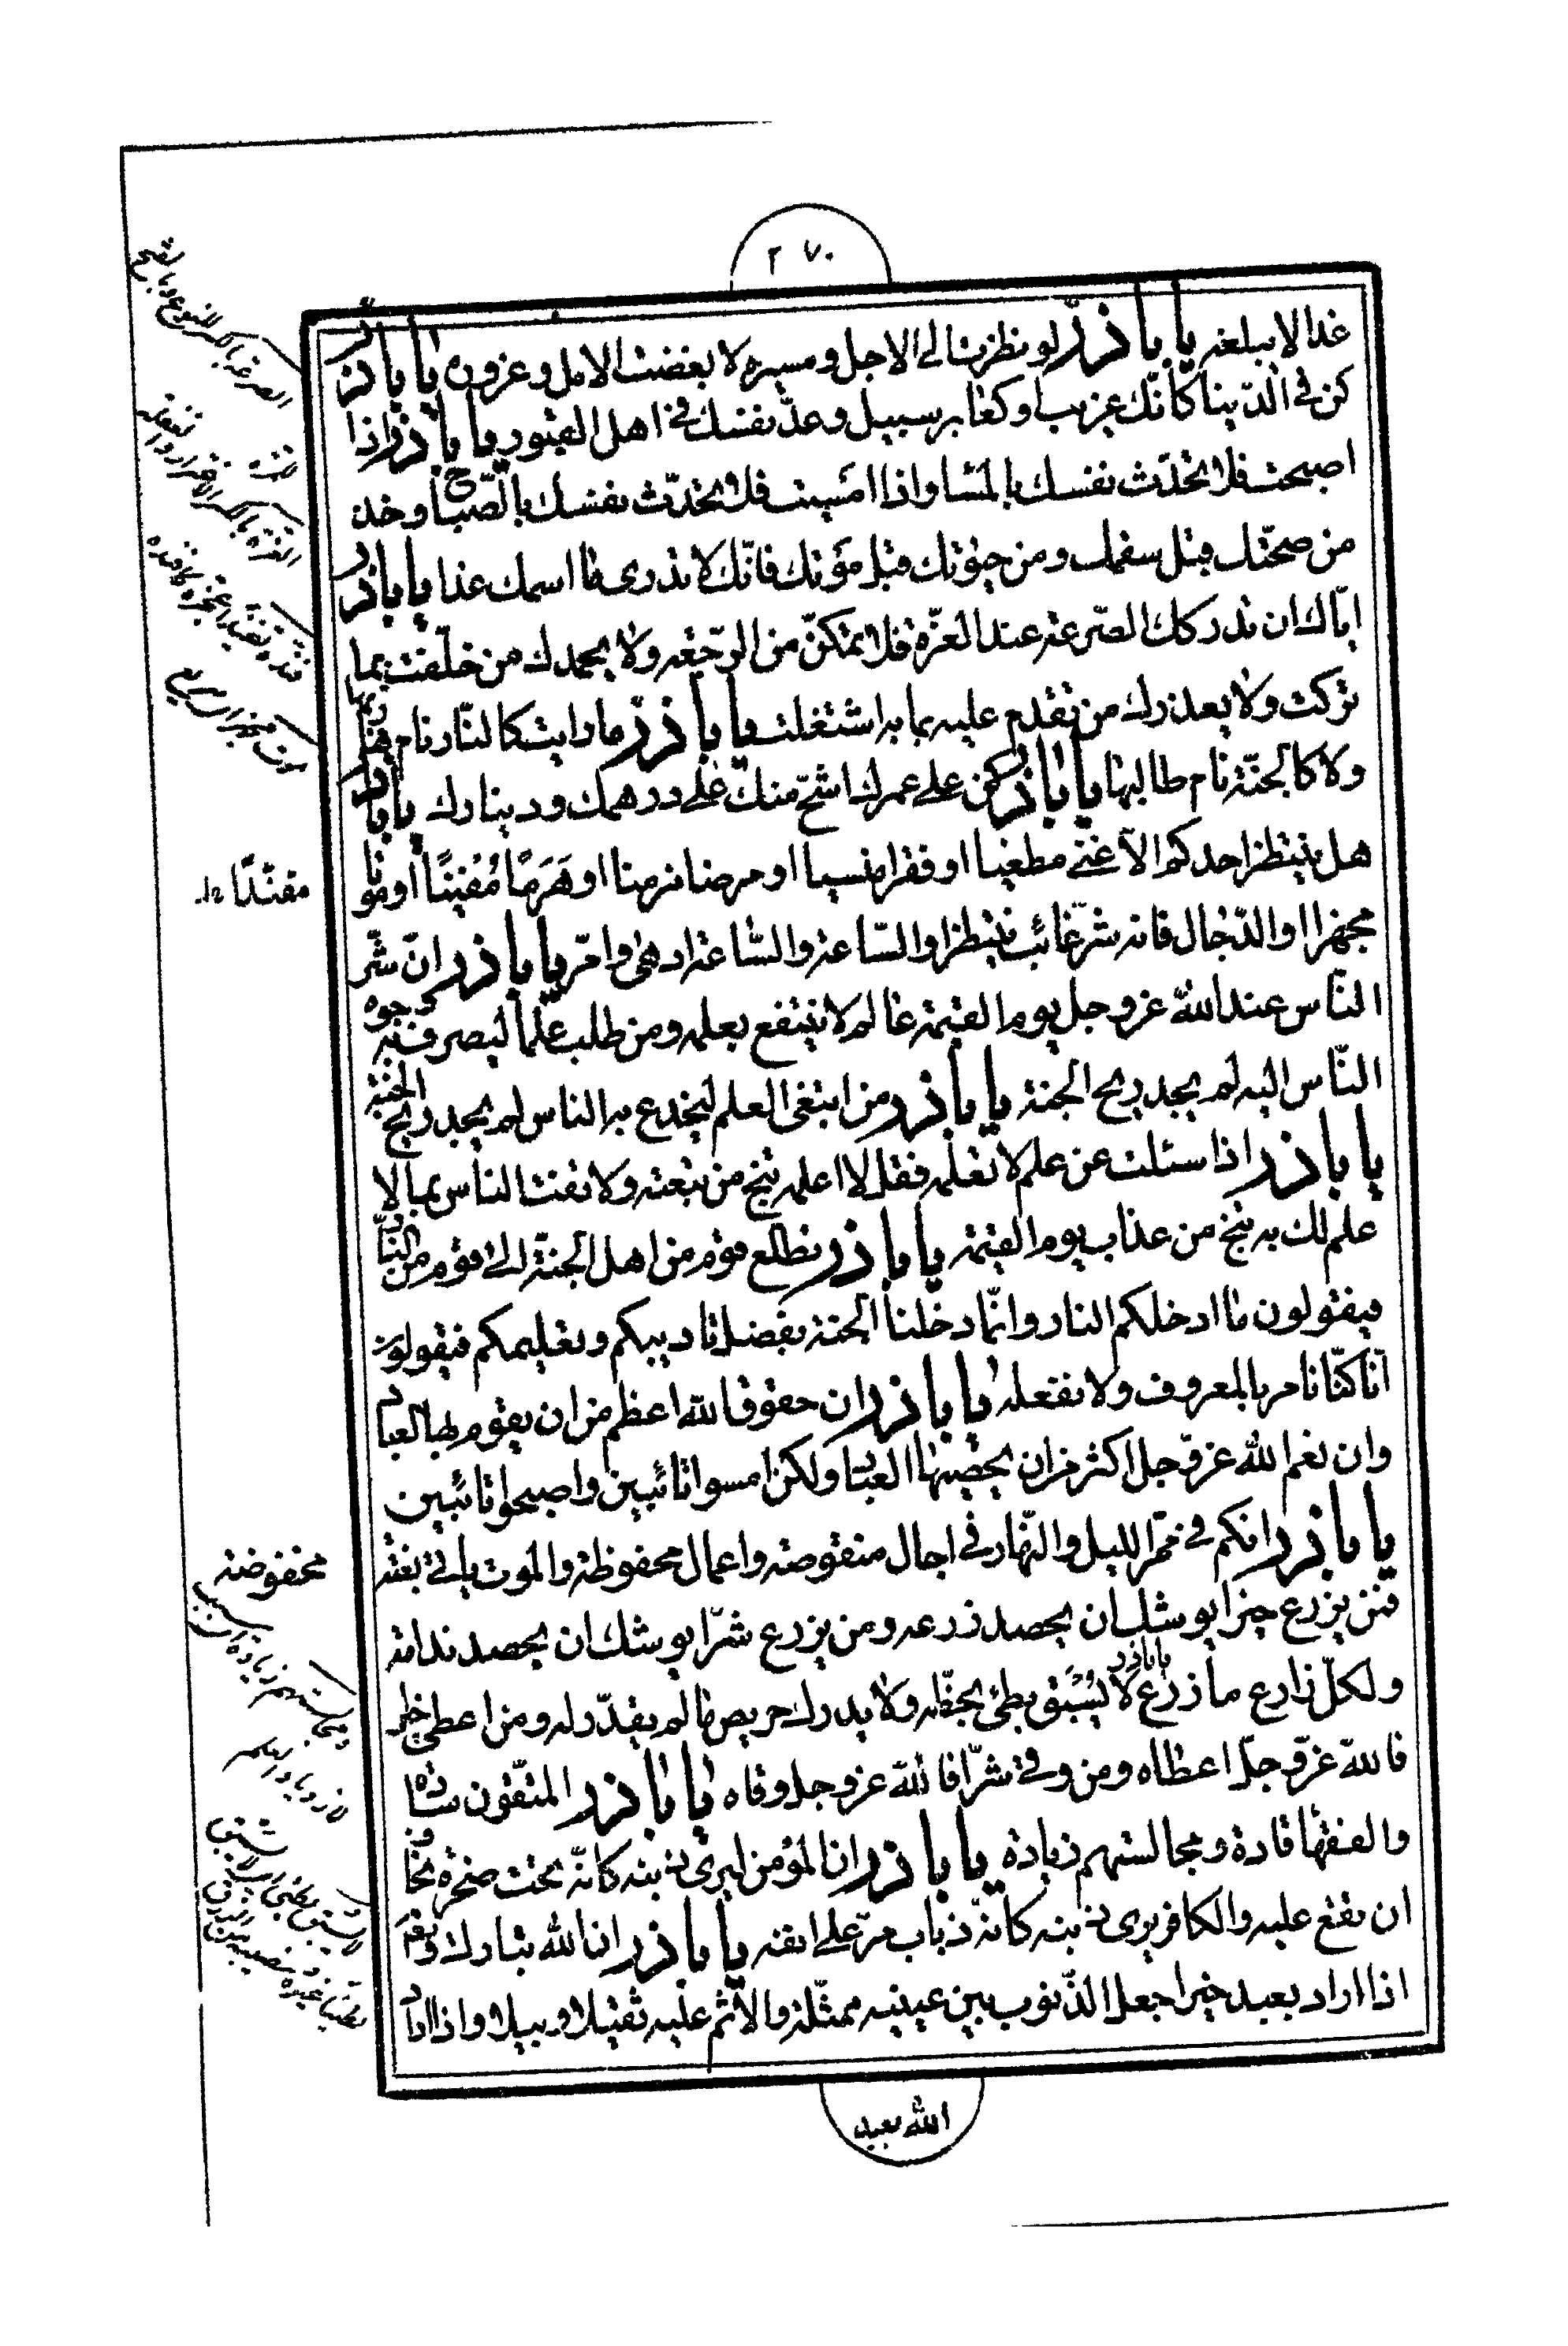 ٢٧٠
غدا لا يبلغه يا باذر لو نظرت الى الاجل و مسيره لا بغضت الامل و غروره يا باذر
كن فى الدّنيا كانّك غريب او كعابر سبيل و عدّ نفسك فى اهل القبور يا باذر اذا
اصبحت فلا تحدّث نفسك بالمسا و اذا امسيت فلا تحدّث نفسك بالصّباح و خذ
من صحّتك قبل سقمك و من حيوتك قبل موتك فانّك لا تدرى ما اسمك غدا يا باذر
ايّاك ان تدركك الصّرعة عند الغرّة فلا تمكنّ من الرّجعة و لا يحمدك من خلّفت بما
تركت و لا يعذرك من تقدم عليه بما به اشتغلت يا باذر ما رايت كالنّار نام هاربها
و لا كالجنّة نام طالبها يا باذر كن على عمرك اشحّ منك على درهمك و دينارك يا باذر
هل ينتظر احدكم الّا غنى مطغيا او فقرا منسيا او مرضا مزمنا او هَرَمًا مُفنِيًا او موتا
مجهرا او الدّجال فانه شرّ غائب ينتظر او السّاعة و السّاعة ادهى و امرّ يا باذر انّ شرّ
النّاس عند الله عز و جل يوم القيمة عالم لا ينتفع بعلمه و من طلب علما ليصرف به وجوه
النّاس اليه لم يجد ريح الجنة يا باذر من ابتغى العلم ليخدع به الناس لم يجد ريح الجنة
يا باذر اذا سئلت عن علم لا تعلمه فقل لا اعلمه تنج من تبعته و لا تفت الناس بما لا
علم لك به تنج من عذاب يوم القيمة يا باذر يطلع قوم من اهل الجنّة الى قوم من النّار
فيقولون ما ادخلكم النار و انّما دخلنا الجنة بفضل تاديبكم و تعليمكم فيقولون
انّا كنّا نامر بالمعروف و لا نفعله يا باذر ان حقوق الله اعظم من ان يقوم بها العباد
و ان نعم الله عز و جل اكثر من ان يحصيها العباد و لكن امسوا تائبين و اصبحوا تائبين
يا باذر انكم فى ممرّ الليل و النّهار فى اجال منقوصة و اعمال محفوظة و الموت ياتى بغتة
فمن يزرع خيرا يوشك ان يحصد زرعه و من يزرع شرّا يوشك ان يحصد ندامة
و لكلّ زارع ما زرع يا باذر لا يُسْبَق بطئ بحظّه و لا يدرك حريص ما لم يقدّر له و من اعطى خيرا
فالله عزّ و جلّ اعطاه و من وقى شرّا فالله عز و جل وقاه يا باذر المتّقون ساده
و الفقها قادة و مجالستهم زيادة يا باذر ان المؤمن ليرى ذنبه كانّه تحت صخرة يخاف
ان تقع عليه و الكافر يرى ذنبه كانّه ذباب مرّ على انفه يا باذر ان الله تبارك و تعالى
اذا اراد بعبد خيرا جعل الذّنوب بين عينيه ممثّلة و الاثم عليه ثقيلا و بيلا و اذا اراد
الله بعبد
مفنّدًا
محفوضة